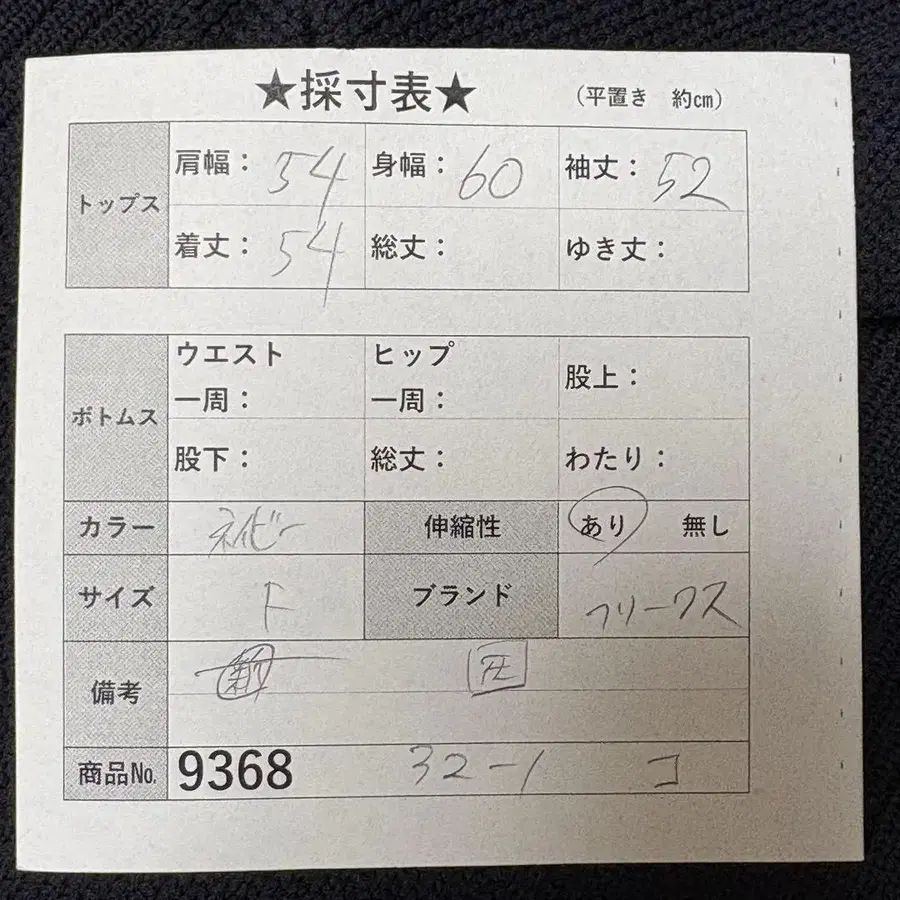 ★採寸表★ (平置き 約㎝)
トップス
肩幅： 54 身幅： 60 袖丈： 52
着丈： 54 総丈： ゆき丈：
ボトムス
ウエスト一周： ヒップ一周： 股上：
股下： 総丈： わたり：
カラー ネイビー 伸縮性 あり 無し
サイズ F ブランド フリークス
備考 新 圧
商品No. 9368 32-1 コ